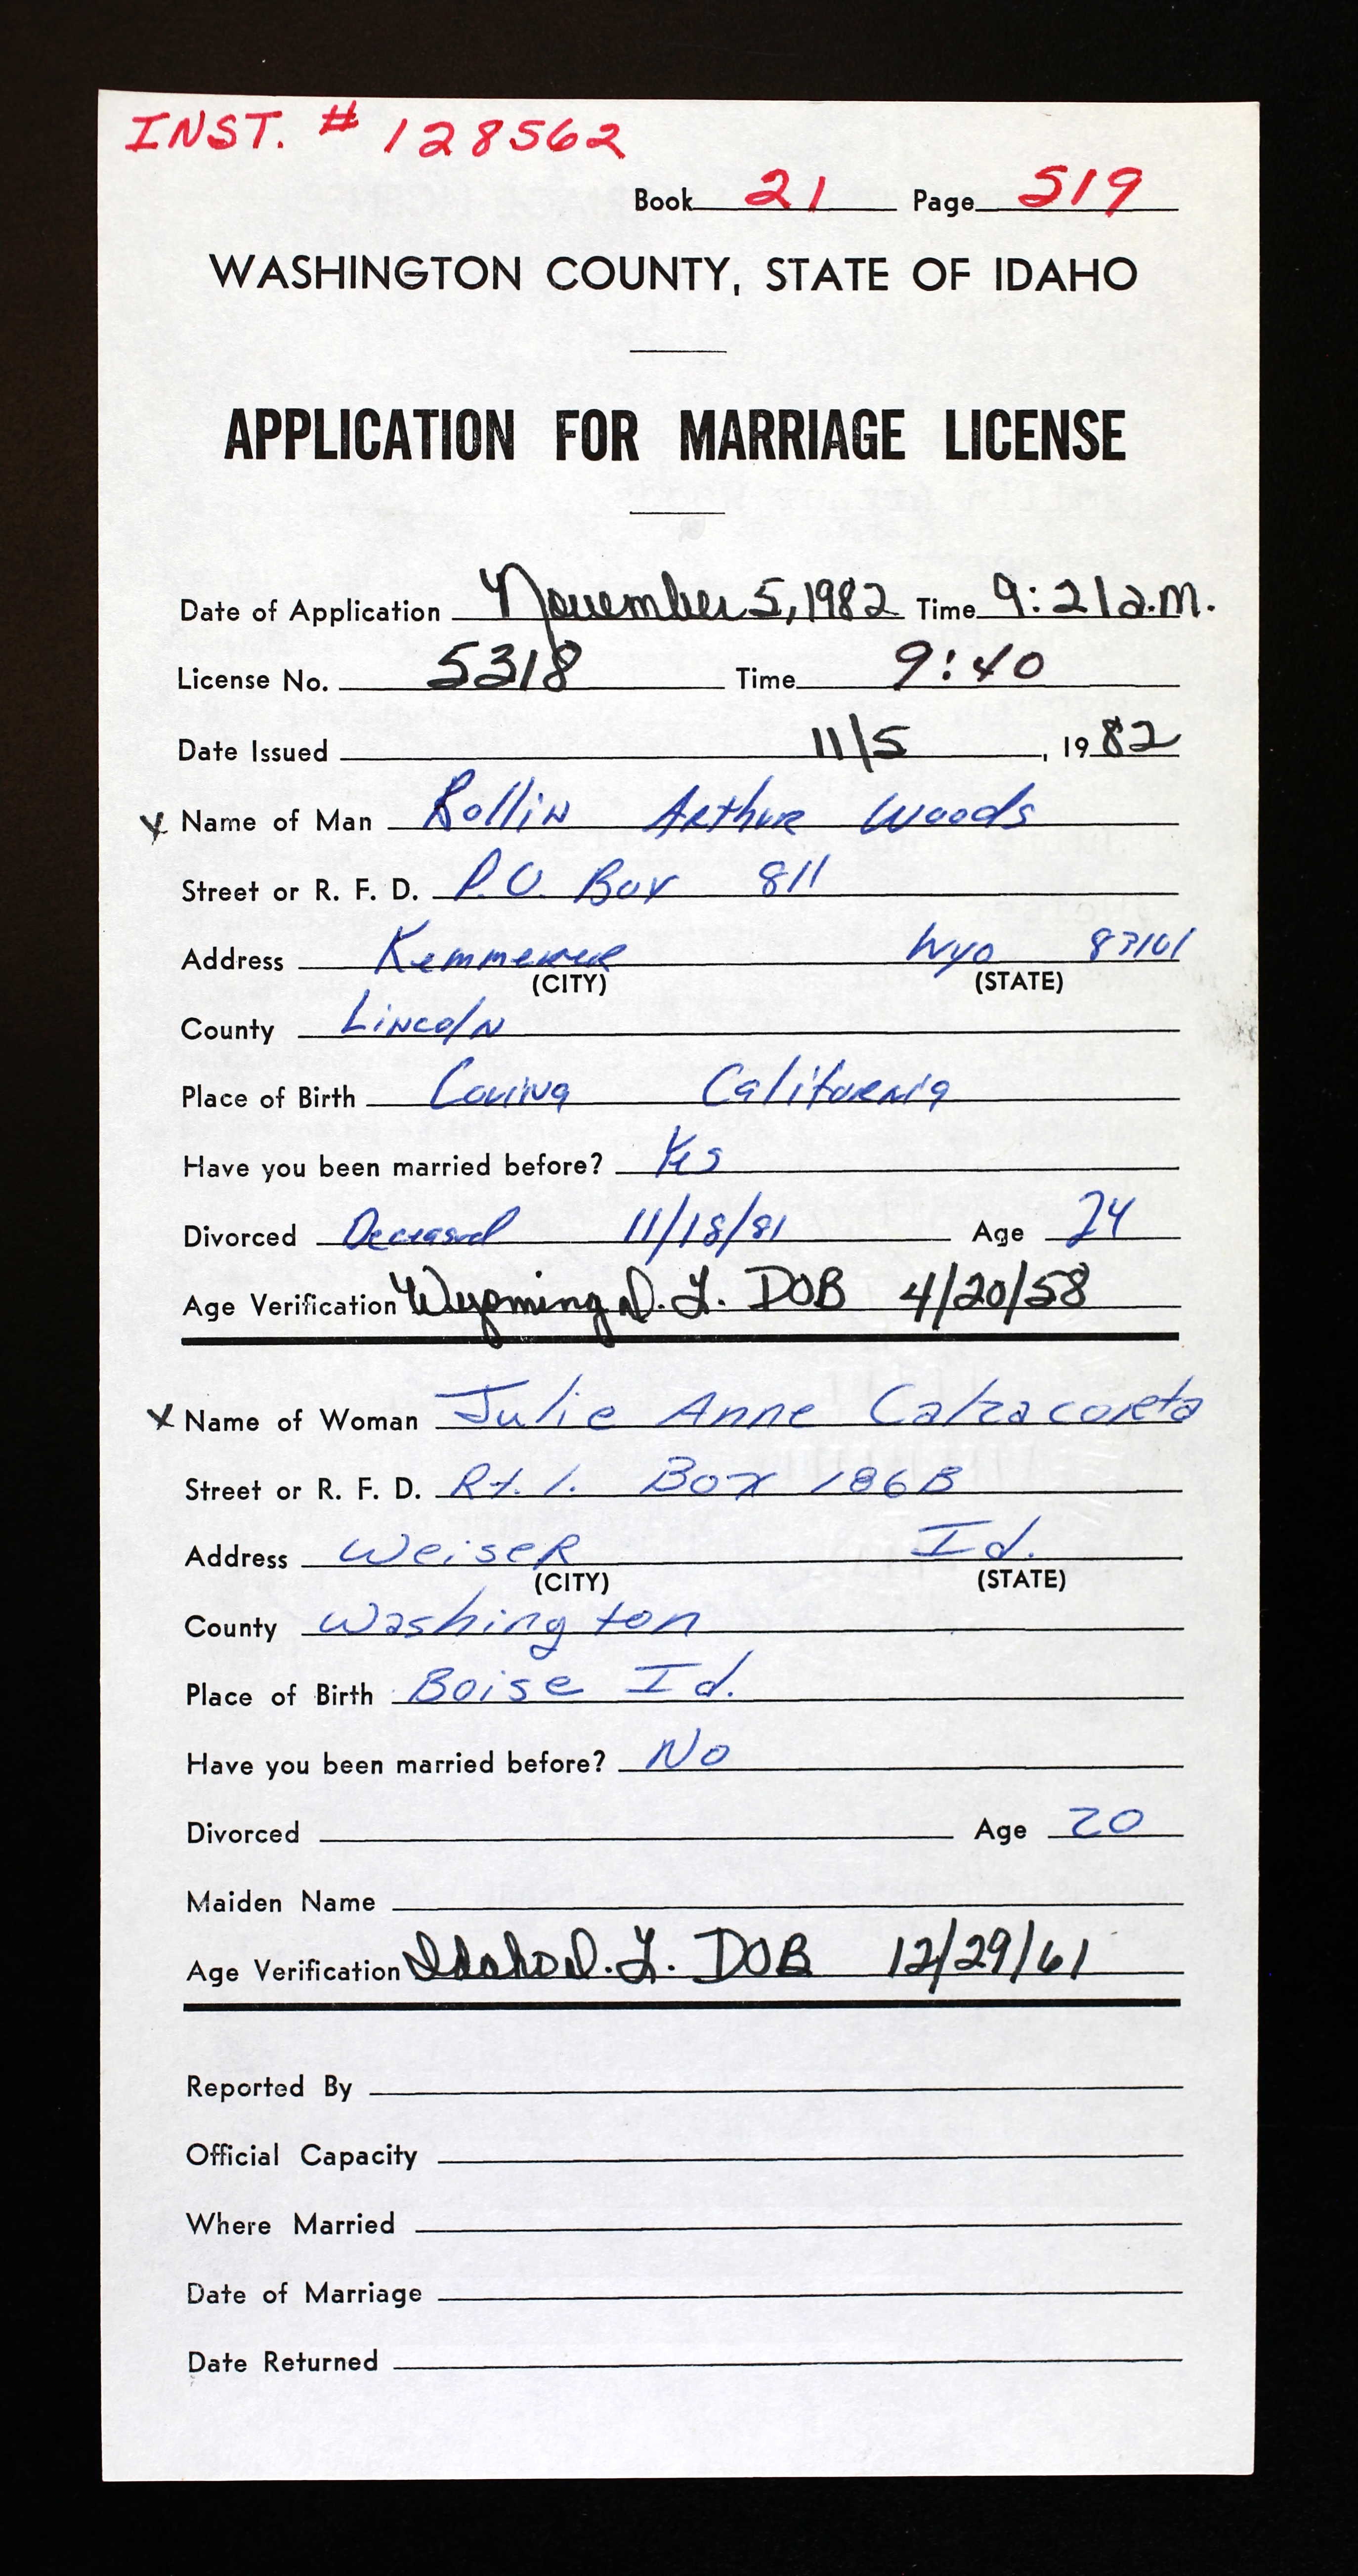 INST. # 128562
Book 21 Page 519
WASHINGTON COUNTY, STATE OF IDAHO
APPLICATION FOR MARRIAGE LICENSE
Date of Application November 5, 1982 Time 9:21 a.m.
License No. 5318 Time 9:40
Date Issued 11/5, 19 82
X Name of Man Rollin Arthur Woods
Street or R. F. D. P.O. Box 811
Address Kemmerer Wyo 83101
(CITY) (STATE)
County Lincoln
Place of Birth Covina California
Have you been married before? Yes
Divorced Deceased 11/18/81 Age 24
Age Verification Wyoming D. L. DOB 4/20/58
X Name of Woman Julie Anne Calzacorta
Street or R. F. D. Rt. 1. Box 186B
Address Weiser Id.
(CITY) (STATE)
County Washington
Place of Birth Boise Id.
Have you been married before? No
Divorced Age 20
Maiden Name
Age Verification Idaho D. L. DOB 12/29/61
Reported By
Official Capacity
Where Married
Date of Marriage
Date Returned